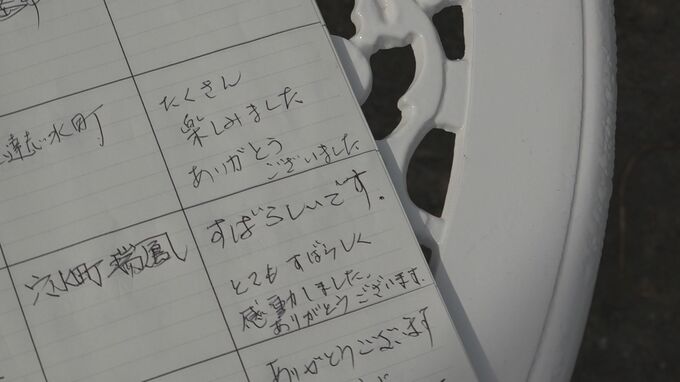 志水町
たくさん
楽しみました
ありがとう
ございました
穴水町
すばらしいです.
とても すばらしく
感動しました.
ありがとうございます.
ありがとうございます